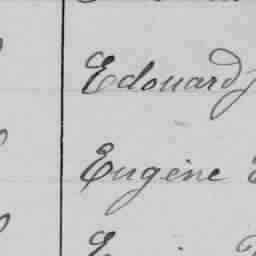 Edouard
Eugène